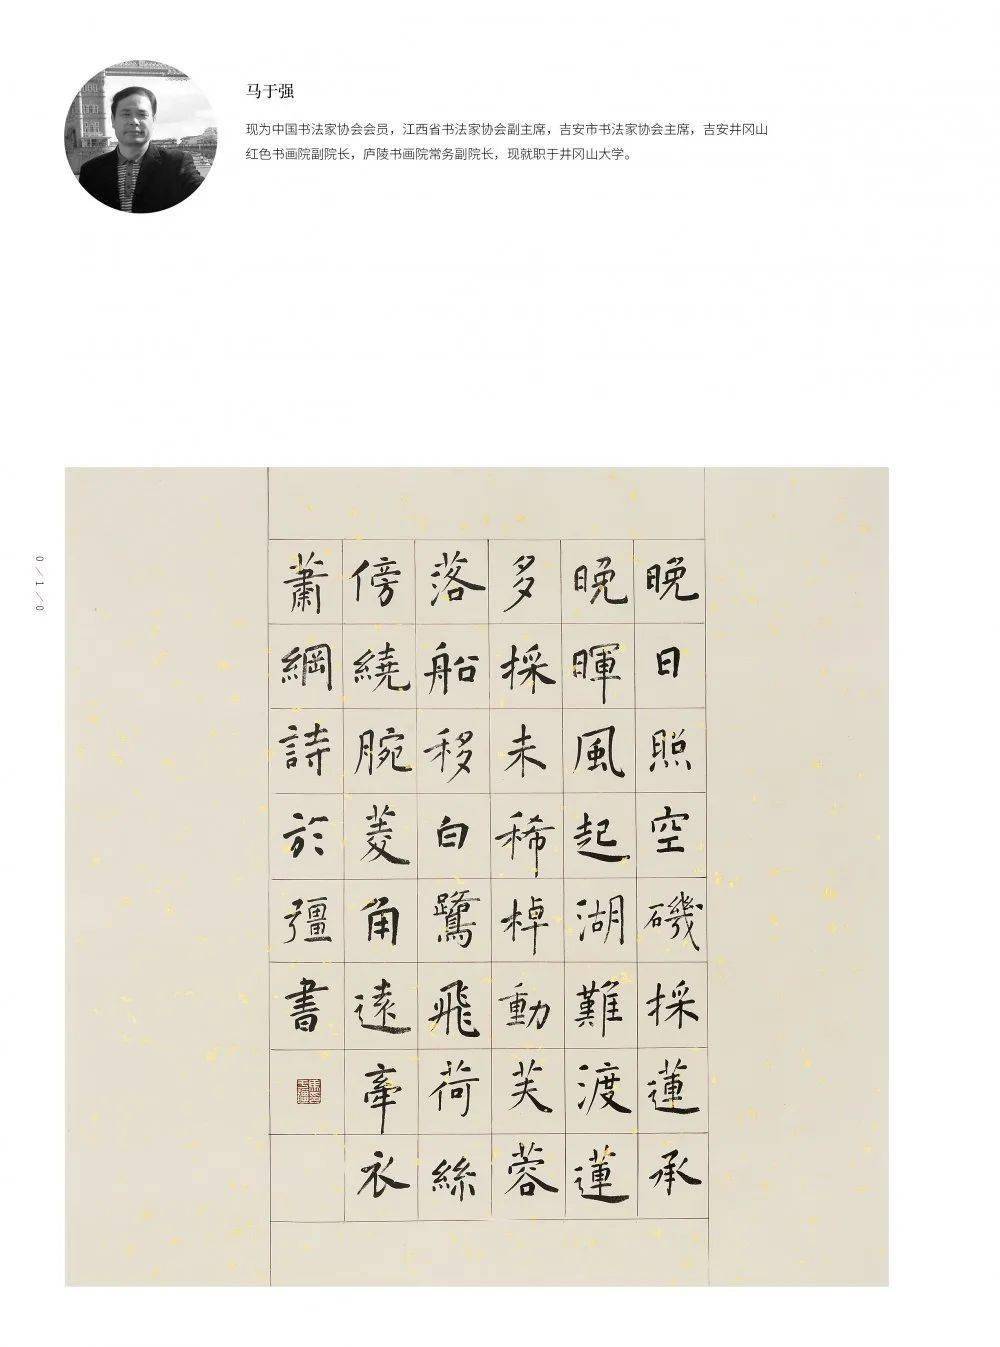 马于强
现为中国书法家协会会员，江西省书法家协会副主席，吉安市书法家协会主席，吉安井冈山
红色书画院副院长，庐陵书画院常务副院长，现就职于井冈山大学。
0/1/0
晚日照空磯採蓮承
晚暉風起湖難渡蓮
多採未稀棹動芙蓉
落船移白鷺飛荷絲
傍繞腕菱角遠牽衣
蕭綱詩於彊書